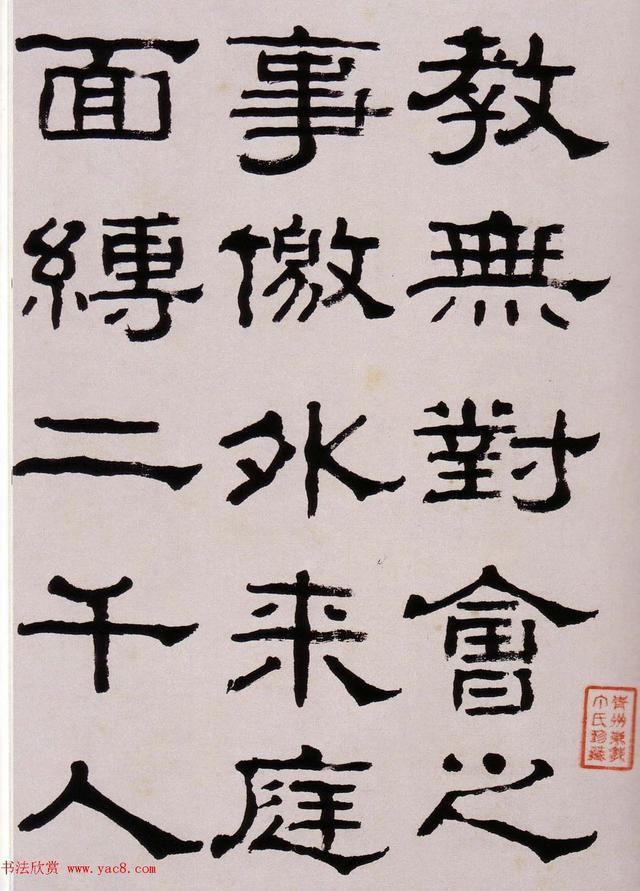 教無對會之
事徼外来庭
面縛二千人
书法欣赏 www.yac8.com